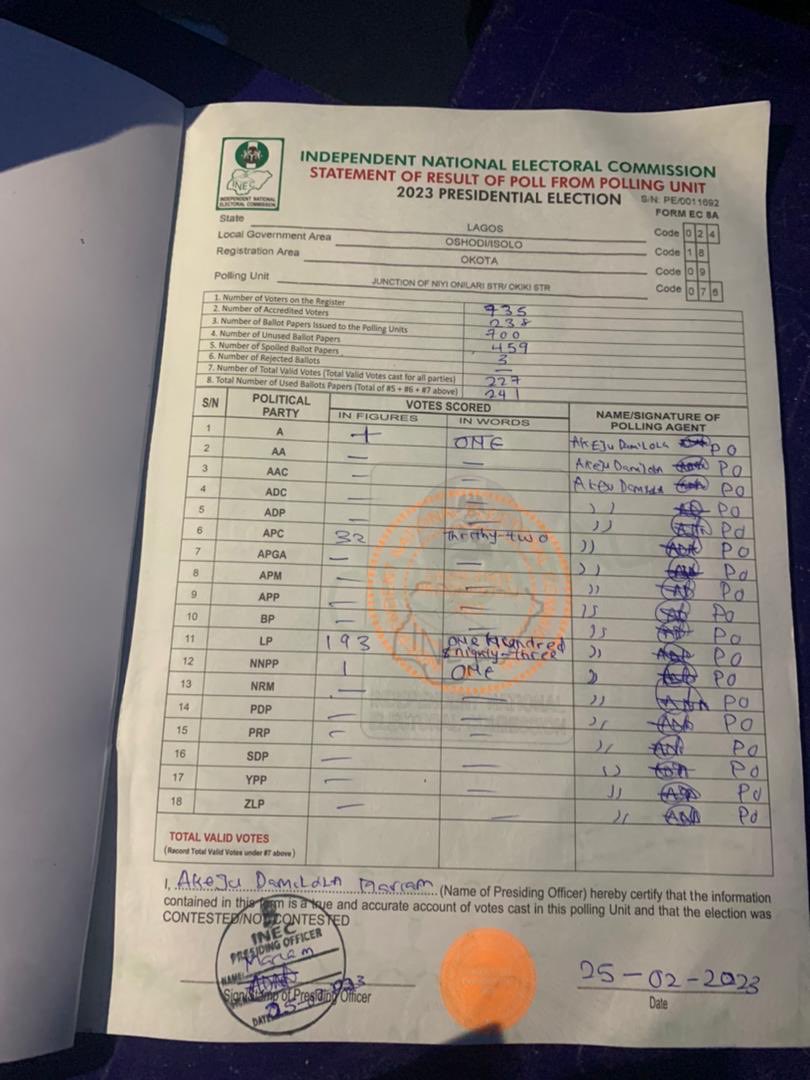 INEC
INDEPENDENT NATIONAL
ELECTORAL COMMISSION
INDEPENDENT NATIONAL ELECTORAL COMMISSION
STATEMENT OF RESULT OF POLL FROM POLLING UNIT
2023 PRESIDENTIAL ELECTION S/N: PE/0011692
FORM EC 8A
State LAGOS Code 0 2 4
Local Government Area OSHODI/ISOLO Code 1 8
Registration Area OKOTA Code 0 9
Polling Unit JUNCTION OF NIYI ONILARI STR/ OKIKI STR Code 0 7 6
1. Number of Voters on the Register 735
2. Number of Accredited Voters 238
3. Number of Ballot Papers Issued to the Polling Units 700
4. Number of Unused Ballot Papers 459
5. Number of Spoiled Ballot Papers 3
6. Number of Rejected Ballots —
7. Number of Total Valid Votes (Total Valid Votes cast for all parties) 227
8. Total Number of Used Ballots Papers (Total of #5 + #6 + #7 above) 241
S/N POLITICAL PARTY VOTES SCORED NAME/SIGNATURE OF POLLING AGENT
IN FIGURES IN WORDS
1 A ONE Akeju Damilola PO
2 AA — — Akeju Damilola PO
3 AAC — — Akeju Damilola PO
4 ADC — — )) PO
5 ADP — — )) PO
6 APC 32 Thirthy-two )) PO
7 APGA — — )) PO
8 APM — — )) PO
9 APP — — PO
10 BP — — PO
11 LP 193 One Hundred & ninghy-three )) PO
12 NNPP 1 ONE )) PO
13 NRM — — )) PO
14 PDP — — PO
15 PRP — — PO
16 SDP — — PO
17 YPP — — )) PO
18 ZLP — — PO
TOTAL VALID VOTES
(Record Total Valid Votes under #7 above)
I, Akeju Damilola Mariam (Name of Presiding Officer) hereby certify that the information
contained in this form is a true and accurate account of votes cast in this polling Unit and that the election was
CONTESTED/NOT CONTESTED
INEC
PRESIDING OFFICER
NAME: Mariam
Sign/Stamp of Presiding Officer
DATE
25-02-2023
Date